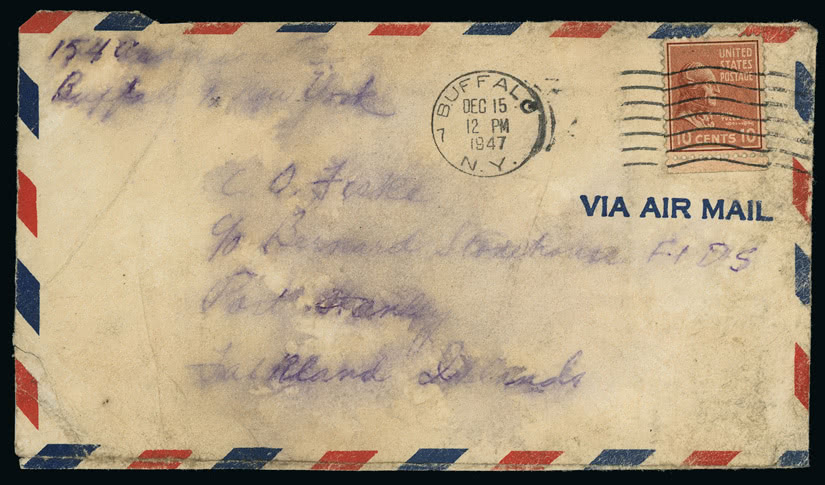 154
Buffalo New York
BUFFALO
7
DEC 15
12 PM
1947
N.Y.
UNITED
STATES
POSTAGE
10 CENTS 10
VIA AIR MAIL
C. O. Fiske
c/o Bernard Stonehouse F.I.D.S
Port Stanley
Falkland Islands